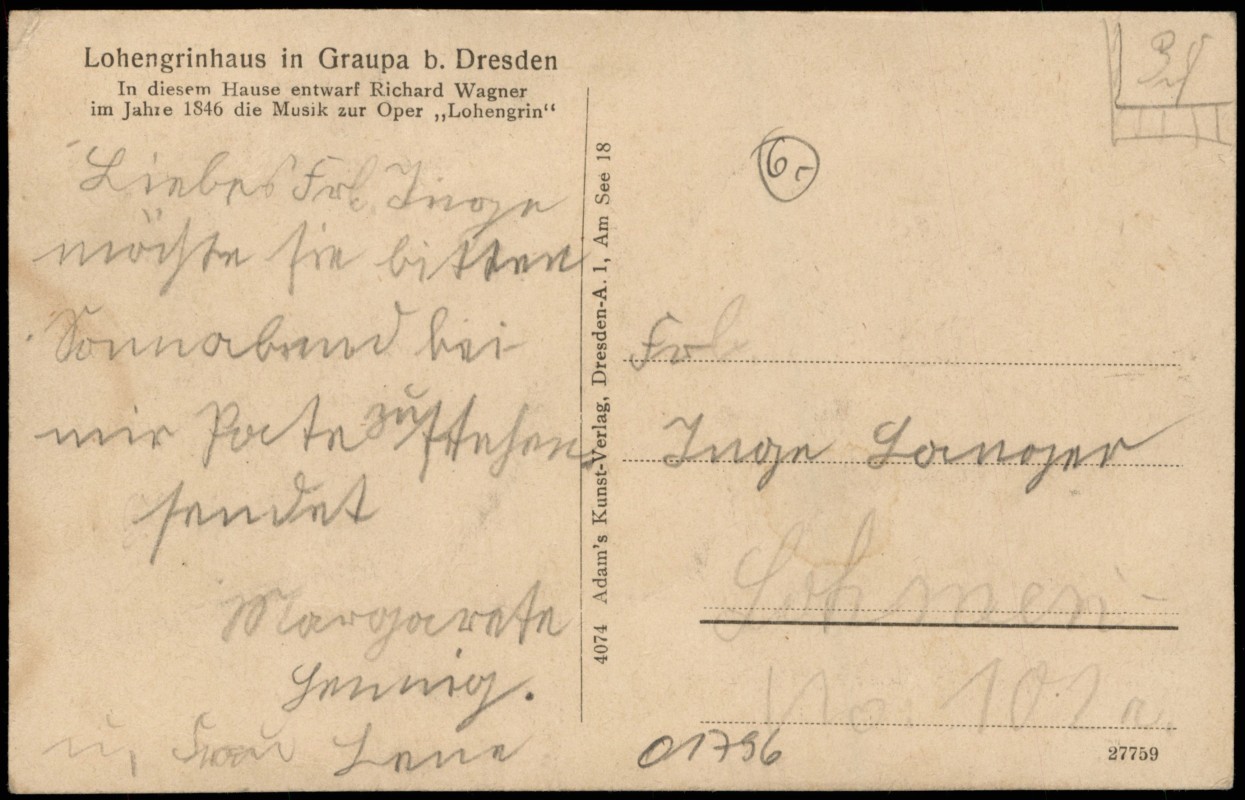 Lohengrinhaus in Graupa b. Dresden
In diesem Hause entwarf Richard Wagner
im Jahre 1846 die Musik zur Oper „Lohengrin“
Liebes Frl. Inge
möchte sie bitten
Sonnabend bei
mir Pate zu stehen.
sendet
Margarete
Hennig.
u. Frau Lene
4074 Adam's Kunst-Verlag, Dresden-A. 1, Am See 18
6.-
Frl
Inge Langer
Lohmen
No. 101a.
01796
27759